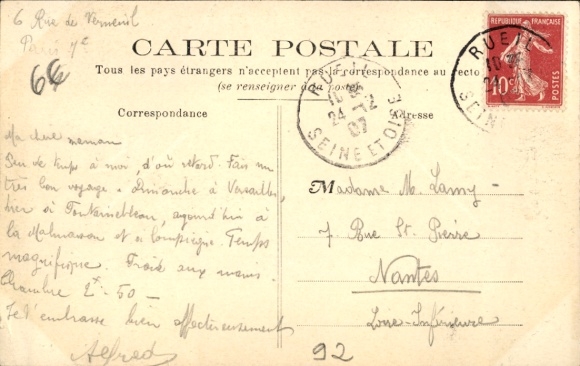 6 Rue de Verneuil
Paris 7e
64
CARTE POSTALE
Tous les pays étrangers n'acceptent pas la correspondance au recto
(se renseigner à la poste)
Correspondance
Adresse
REPUBLIQUE FRANÇAISE
10c
POSTES
RUEIL
SEINE
RUEIL
24 -12
07
SEINE ET OISE
Ma chère maman
Peu de temps à moi, d'où retard. Fais un
très bon voyage - Dimanche à Versailles,
hier à Fontainebleau, aujourd'hui à
la Malmaison et à Compiègne. Temps
magnifique. Froid aux mains.
Chambre 2f-50 -
Je t'embrasse bien affectueusement
Alfred
Madame M. Lamy
7 Rue St. Pierre
Nantes
Loire-Inférieure
92